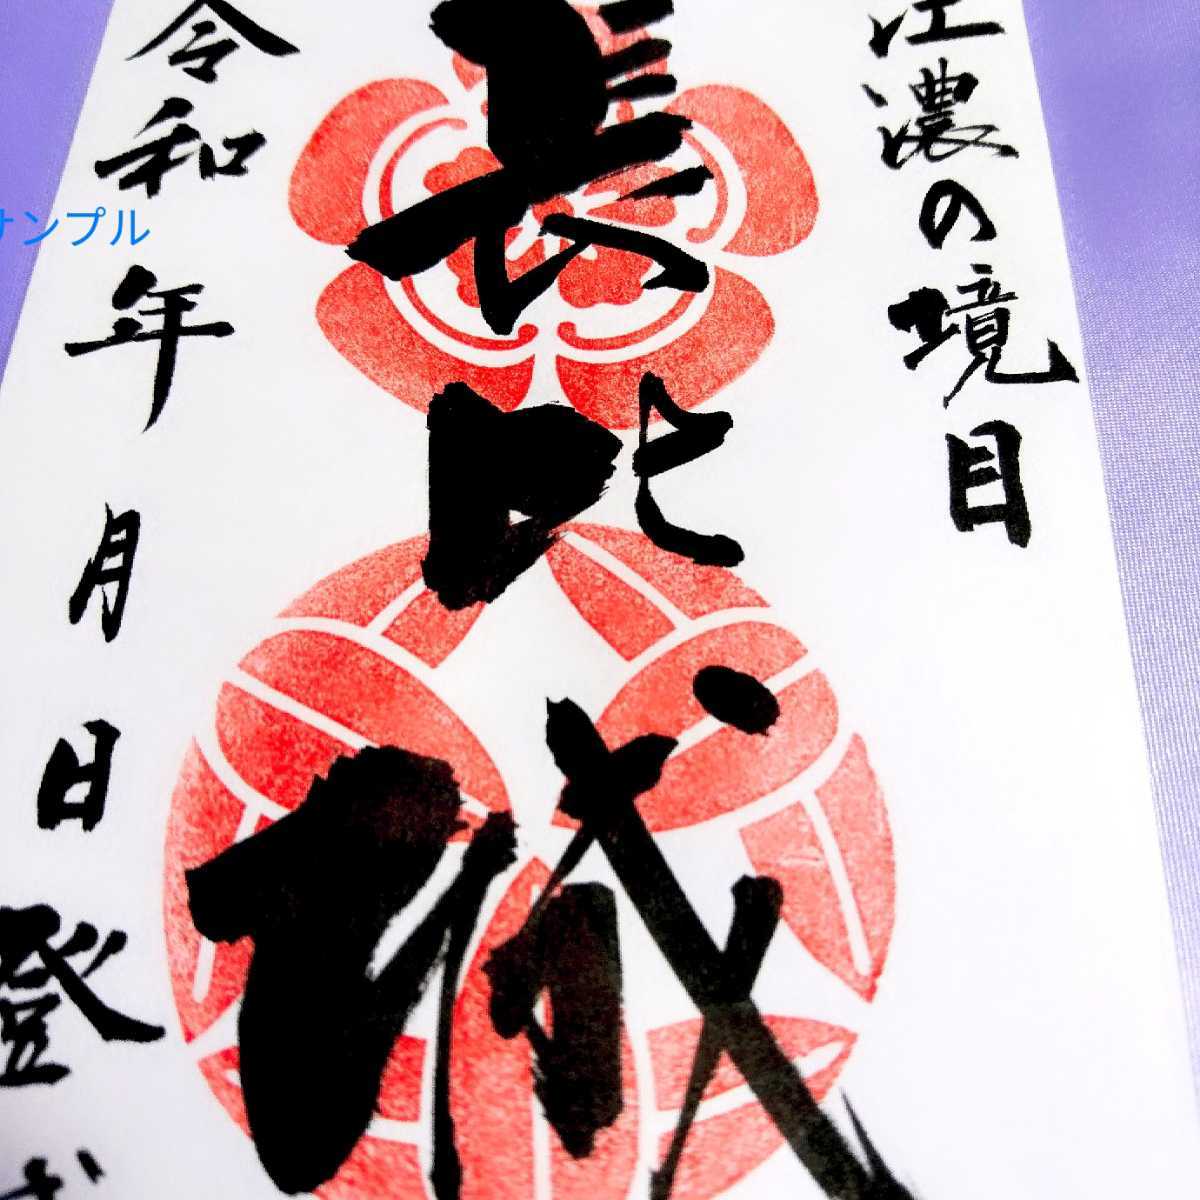 江濃の境目
長比城
令和 年 月 日 登
サンプル